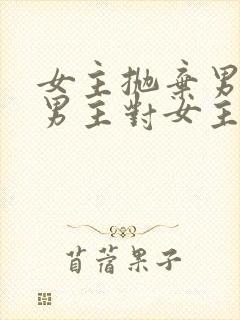 女主拋棄男
男主對女主
苜蓿果子